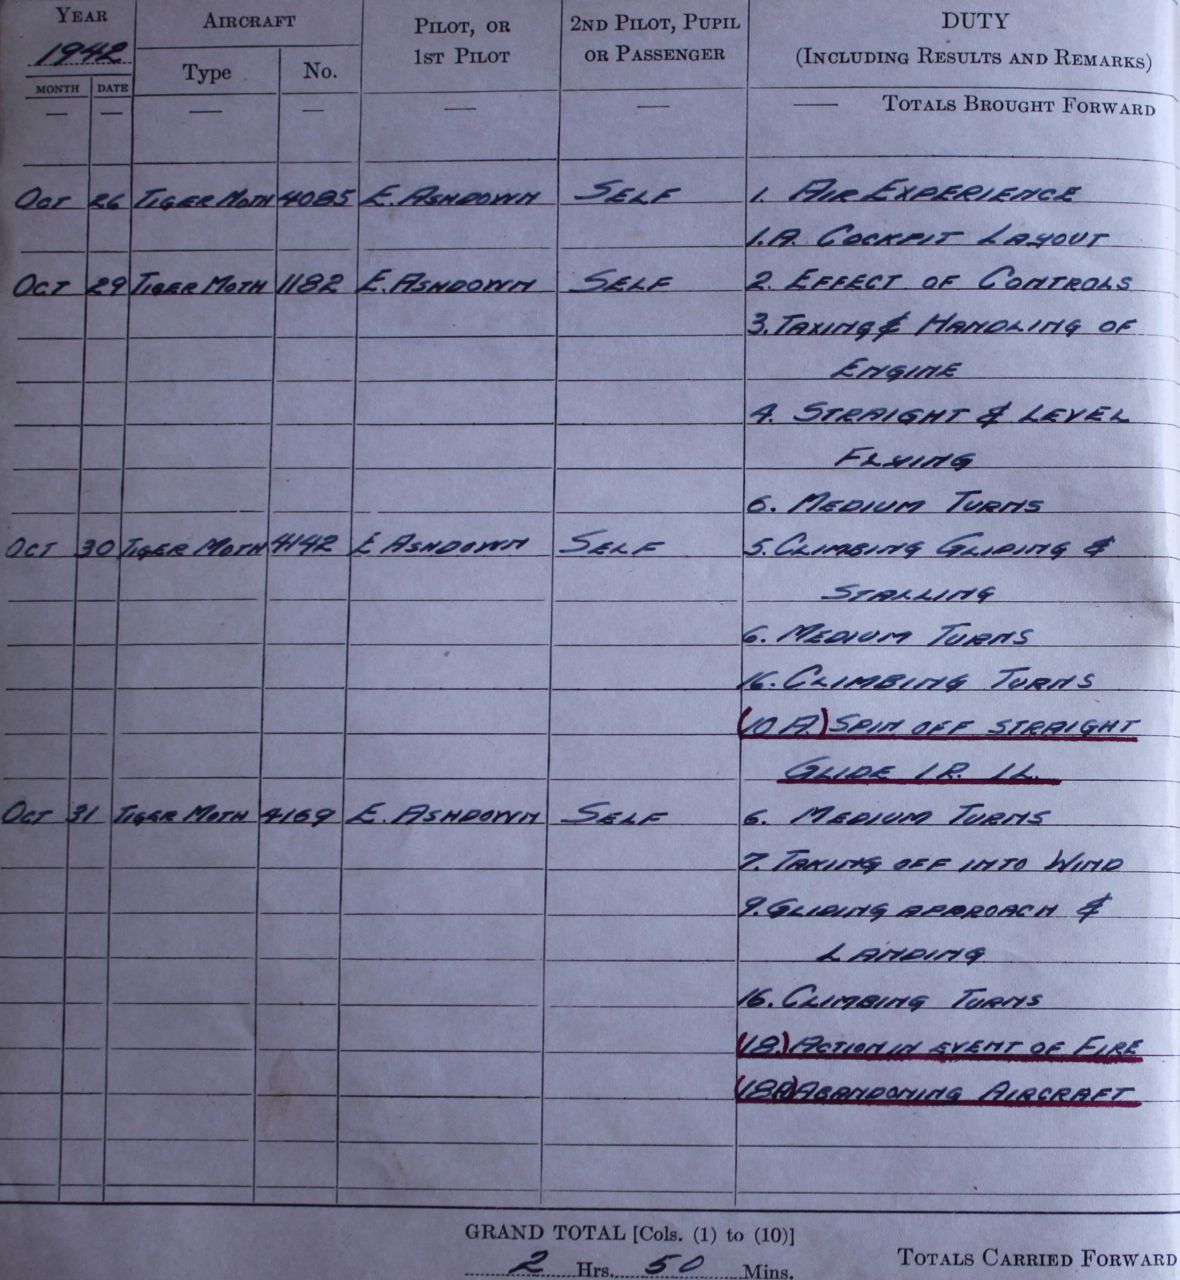 YEAR AIRCRAFT PILOT, OR 1ST PILOT 2ND PILOT, PUPIL OR PASSENGER DUTY (INCLUDING RESULTS AND REMARKS)
1942 Type No.
MONTH DATE
— — — — — — — TOTALS BROUGHT FORWARD
OCT 26 TIGER MOTH 4085 E. ASHDOWN SELF 1. AIR EXPERIENCE
1.A. COCKPIT LAYOUT
OCT 29 TIGER MOTH 1182 E. ASHDOWN SELF 2. EFFECT OF CONTROLS
3. TAXING & HANDLING OF
ENGINE
4. STRAIGHT & LEVEL
FLYING
6. MEDIUM TURNS
OCT 30 TIGER MOTH 4142 E ASHDOWN SELF 5. CLIMBING GLIDING &
STALLING
6. MEDIUM TURNS
16. CLIMBING TURNS
(10 A.) SPIN OFF STRAIGHT
GLIDE 1R. 1L.
OCT 31 TIGER MOTH 4169 E. ASHDOWN SELF 6. MEDIUM TURNS
7. TAKING OFF INTO WIND
9. GLIDING APPROACH &
LANDING
16. CLIMBING TURNS
(18.) ACTION IN EVENT OF FIRE
(18A) ABANDONING AIRCRAFT
GRAND TOTAL [Cols. (1) to (10)]
2 Hrs. 50 Mins. TOTALS CARRIED FORWARD